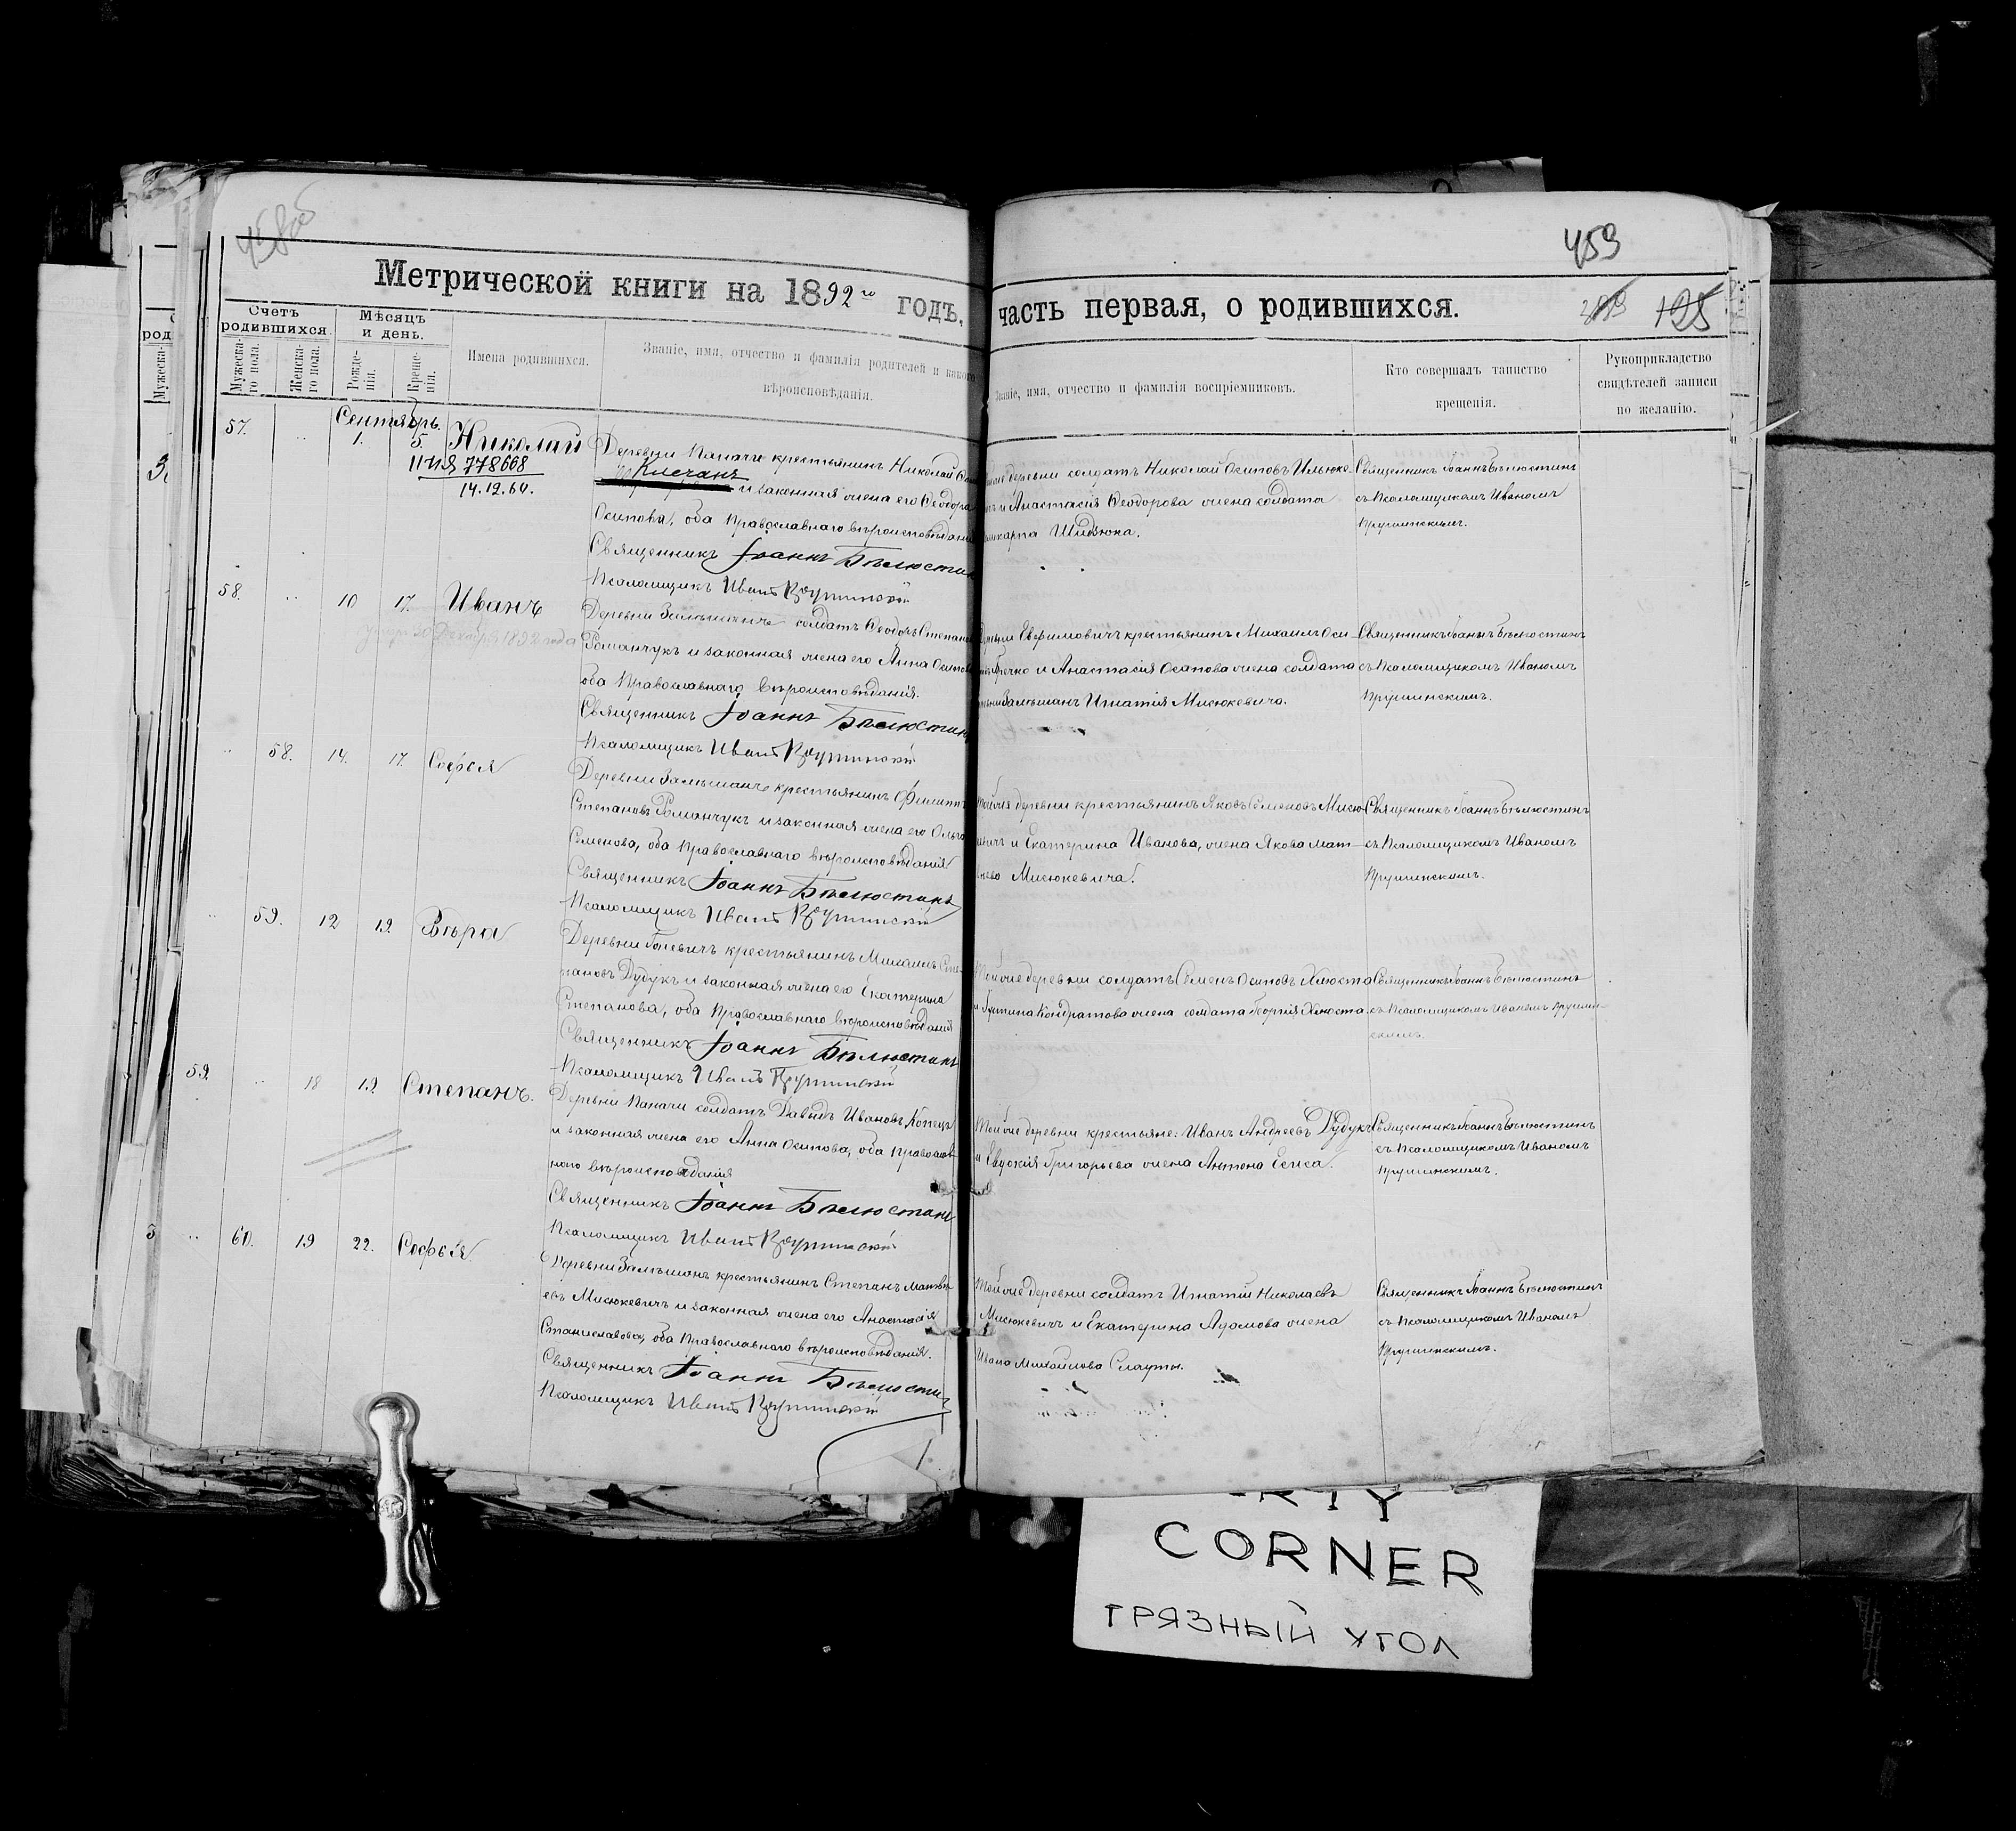 458об
459
Метрической книги на 1892го годъ, часть первая, о родившихся.
125
Счетъ родившихся.
Мужеска-го пола.
Женска-го пола.
Мѣсяцъ и день.
Рожде-нія.
Креще-нія.
Имена родившихся.
Званіе, имя, отчество и фамилія родителей и какого
вѣроисповѣданія.
Званіе, имя, отчество и фамилія воспріемниковъ.
Кто совершалъ таинство
крещенія.
Рукоприкладство
свидѣтелей записи
по желанію.
Сентябрь.
57. 1. 5. Николай
II-ИЯ 778668
14.12.60.
Деревни Паначи крестьянинъ Николай
и законная жена его Феодора
Осипова, оба Православнаго вѣроисповѣданія
Священникъ Іоаннъ Бѣлюстинъ
Псаломщикъ Иванъ
деревни солдатъ Николай Осиповъ
и Анастасія Феодорова жена солдата
Священникъ Іоаннъ Бѣлюстинъ
съ Псаломщикомъ Иваномъ
58. 10 17. Иванъ
1892 года
Деревни солдатъ Феодоръ Степановъ
Романчукъ и законная жена его Анна Осипова
оба Православнаго вѣроисповѣданія.
Священникъ Іоаннъ Бѣлюстинъ
Псаломщикъ Иванъ
Ефримовичъ крестьянинъ Михаилъ Оси-
и Анастасія Осипова жена солдата
Игнатія Мисюкевича.
Священникъ Іоаннъ Бѣлюстинъ
съ Псаломщикомъ Иваномъ
58. 14. 17. Софія
Деревни Замѣшанъ крестьянинъ Филиппъ
Степановъ Романчукъ и законная жена его Ольга
Семенова, оба Православнаго вѣроисповѣданія
Священникъ Іоаннъ Бѣлюстинъ
Псаломщикъ Иванъ
Той же деревни крестьянинъ Яковъ Семеновъ Мисю-
и Екатерина Иванова, жена Якова Мат-
Мисюкевича.
Священникъ Іоаннъ Бѣлюстинъ
съ Псаломщикомъ Иваномъ
59. 12 19. Вѣра
Деревни крестьянинъ Михаилъ Сте-
пановъ Дудукъ и законная жена его Екатерина
Степанова, оба Православнаго вѣроисповѣданія
Священникъ Іоаннъ Бѣлюстинъ
Псаломщикъ Иванъ
Той же деревни солдатъ Семенъ Осиповъ Хлюста
Кондратова жена солдата Георгія Хлюста.
Священникъ Іоаннъ Бѣлюстинъ
съ Псаломщикомъ Иваномъ
59. 18 19. Степанъ.
Деревни Паначи солдатъ Давидъ Ивановъ Копецъ
и законная жена его Анна Осипова, оба Православ-
наго вѣроисповѣданія
Священникъ Іоаннъ Бѣлюстинъ
Псаломщикъ Иванъ
Той же деревни крестьяне: Иванъ Андреевъ Дудукъ
и Евдокія Григорьева жена Антона
Священникъ Іоаннъ Бѣлюстинъ
съ Псаломщикомъ Иваномъ
60. 19 22. Софья
Деревни Замѣшанъ крестьянинъ Степанъ Матвѣ-
евъ Мисюкевичъ и законная жена его Анастасія
Станиславова, оба Православнаго вѣроисповѣданія.
Священникъ Іоаннъ Бѣлюстинъ
Псаломщикъ Иванъ
Той же деревни солдатъ Игнатій Николаевъ
Мисюкевичъ и Екатерина Адамова жена
Ивана Михайлова Слауты.
Священникъ Іоаннъ Бѣлюстинъ
съ Псаломщикомъ Иваномъ
CORNER
ГРЯЗНЫЙ УГОЛ